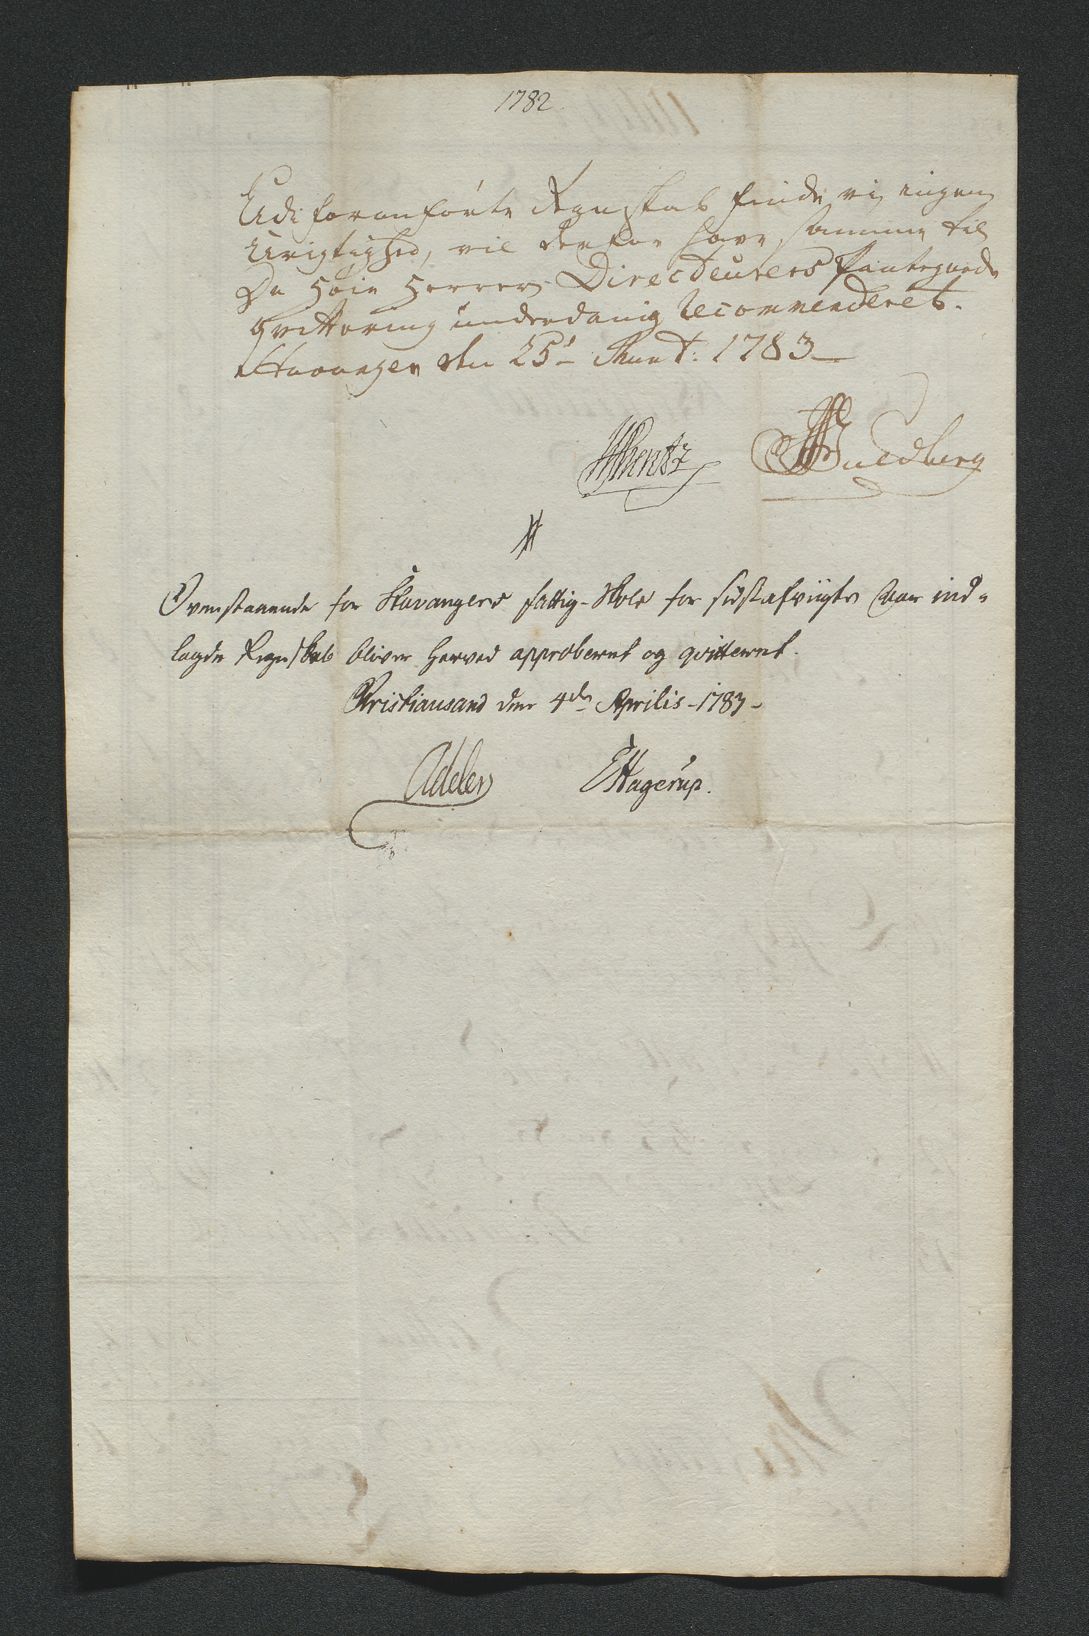 1782.
Udi foranførte Regnskab finde vi ingen
Urigtighed, vil derfor have samme til
De Høie Herrer Directeurers
Qvittering underdanig Recommenderet.
Stavanger den 25de Mart: 1783
Buedberg
Ovenstaaende for Stavangers fattig-Skole for sidstafvigte Aar ind-
lagde Regnskab bliver herved approberet og qvitteret.
Christiansand den 4de Aprilis 1783
Adeler EHagerup.